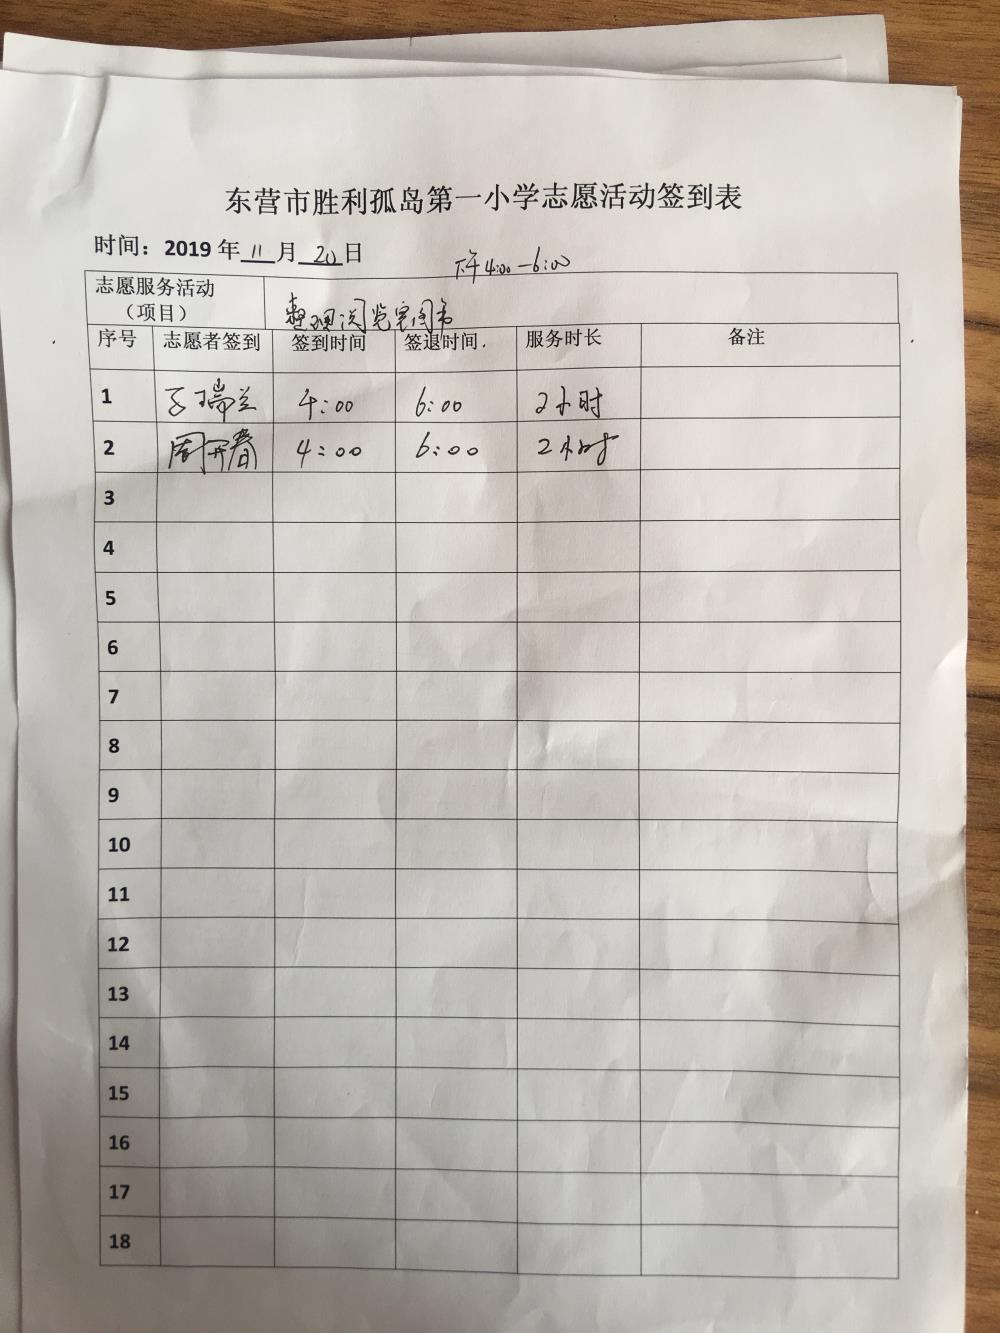 东营市胜利孤岛第一小学志愿活动签到表
时间：2019 年 11 月 20 日 下午4:00—6:00
志愿服务活动 整理阅览室图书
（项目）
序号 志愿者签到 签到时间 签退时间 服务时长 备注
1 瑞兰 4:00 6:00 2小时
2 周开春 4:00 6:00 2小时
3
4
5
6
7
8
9
10
11
12
13
14
15
16
17
18